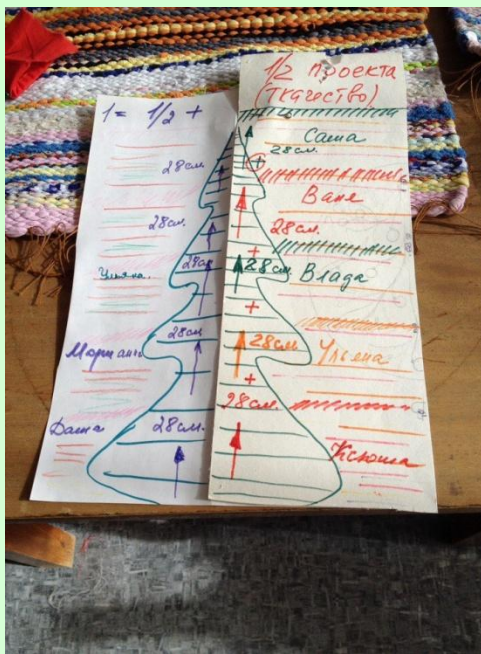 1 = 1/2 +
28 см.
28 см.
Ульяна.
28 см.
28 см.
Даша
28 см.
1/2 проекта
(ткачество)
Саша
28 см.
+
Ваня
28 см.
+
28 см.
Влада
+
28 см.
Ульяна
+
28 см.
Ксюша